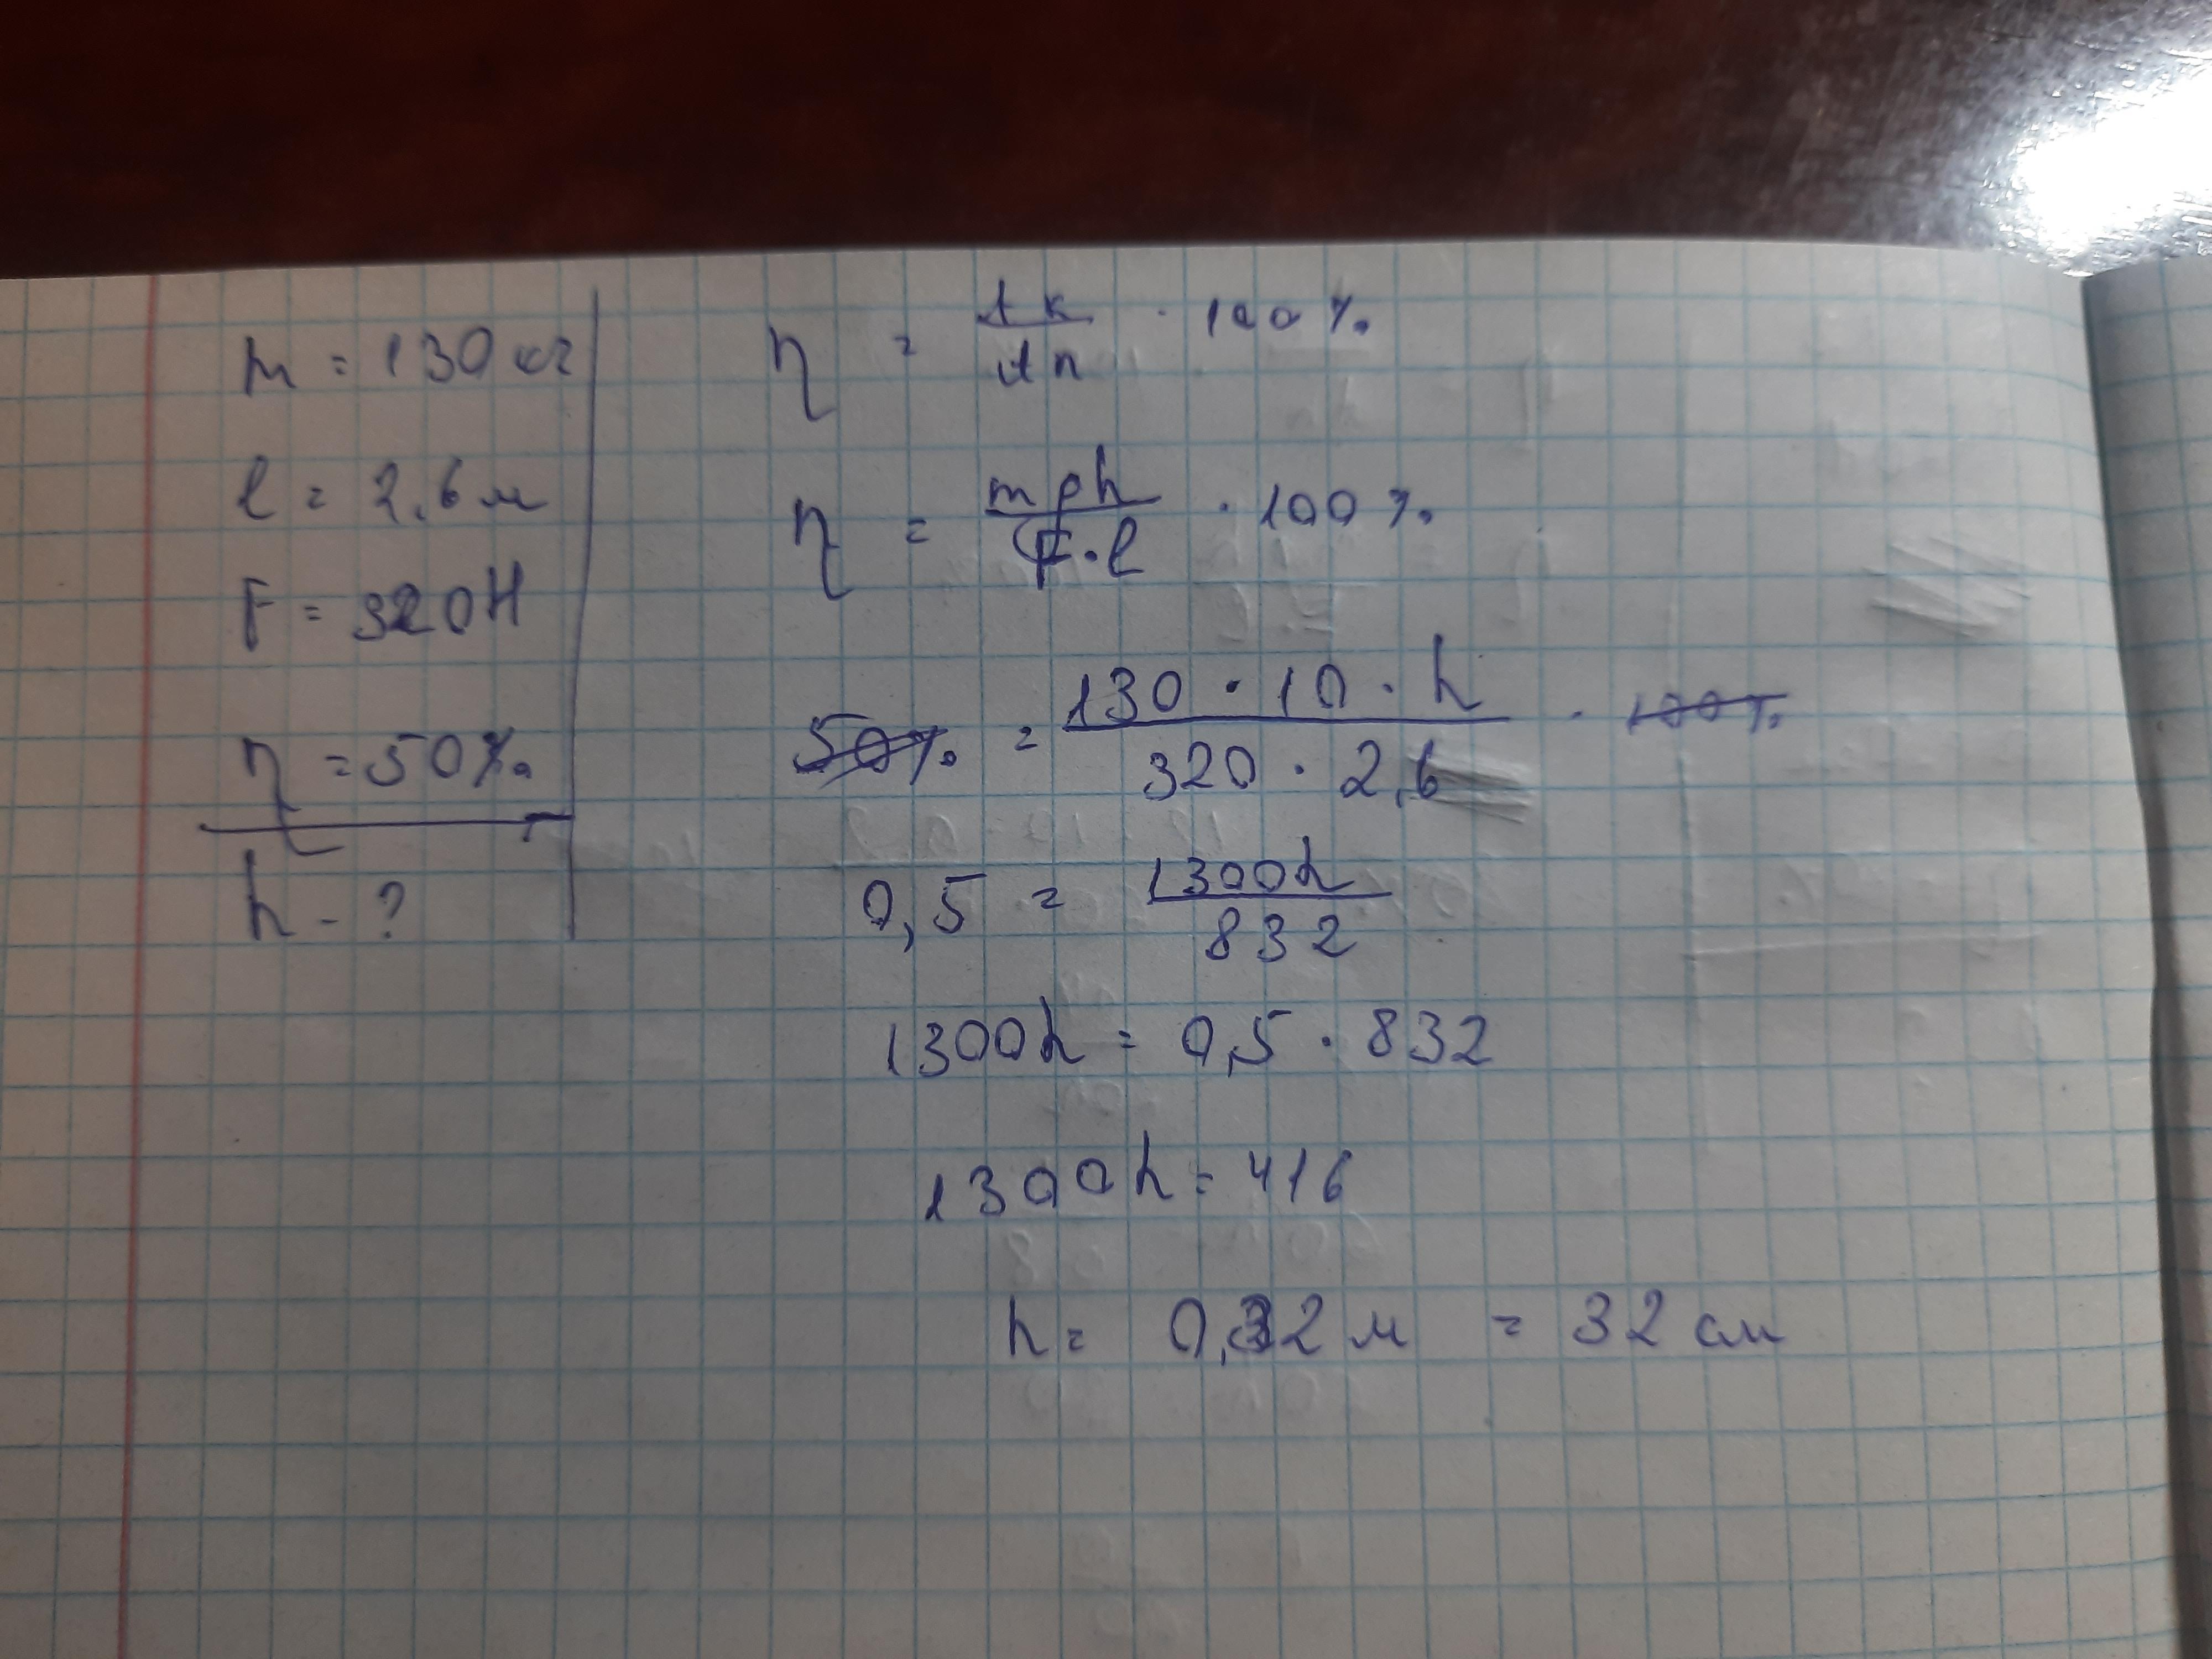 m = 130 кг
l = 2,6 м
F = 320 Н
η = 50%
h - ?
η = Aк / Aп · 100%
η = mgh / F·l · 100%
50% = 130 · 10 · h / 320 · 2,6 · 100%
0,5 = 1300h / 832
1300h = 0,5 · 832
1300h = 416
h = 0,32 м = 32 см